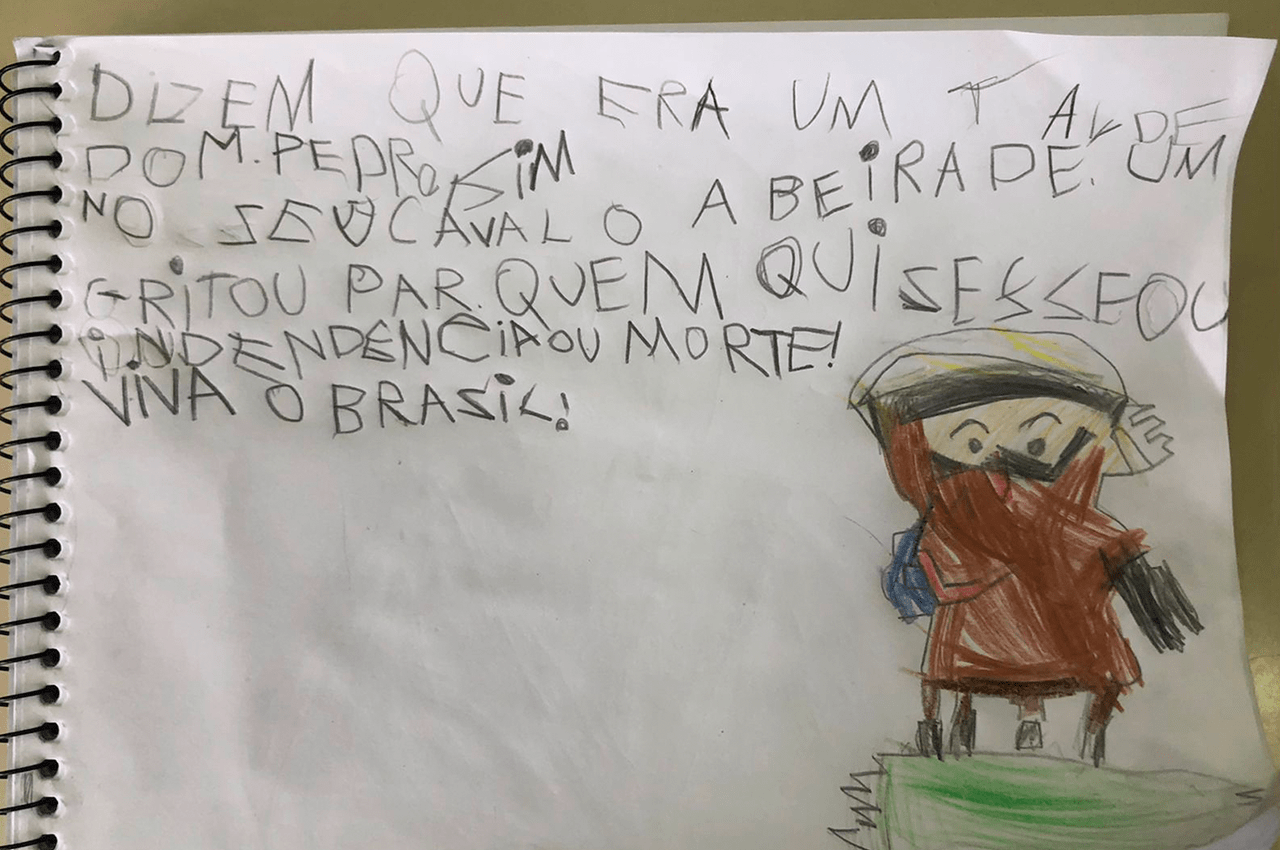 DIZEM QUE ERA UM TAL DE
DOM. PEDRO SIM
NO SEU CAVALO A BEIRA DE. UM
GRITOU PAR. QUEM QUISESSE OU
INDENDENCIA OU MORTE!
VIVA O BRASIL!